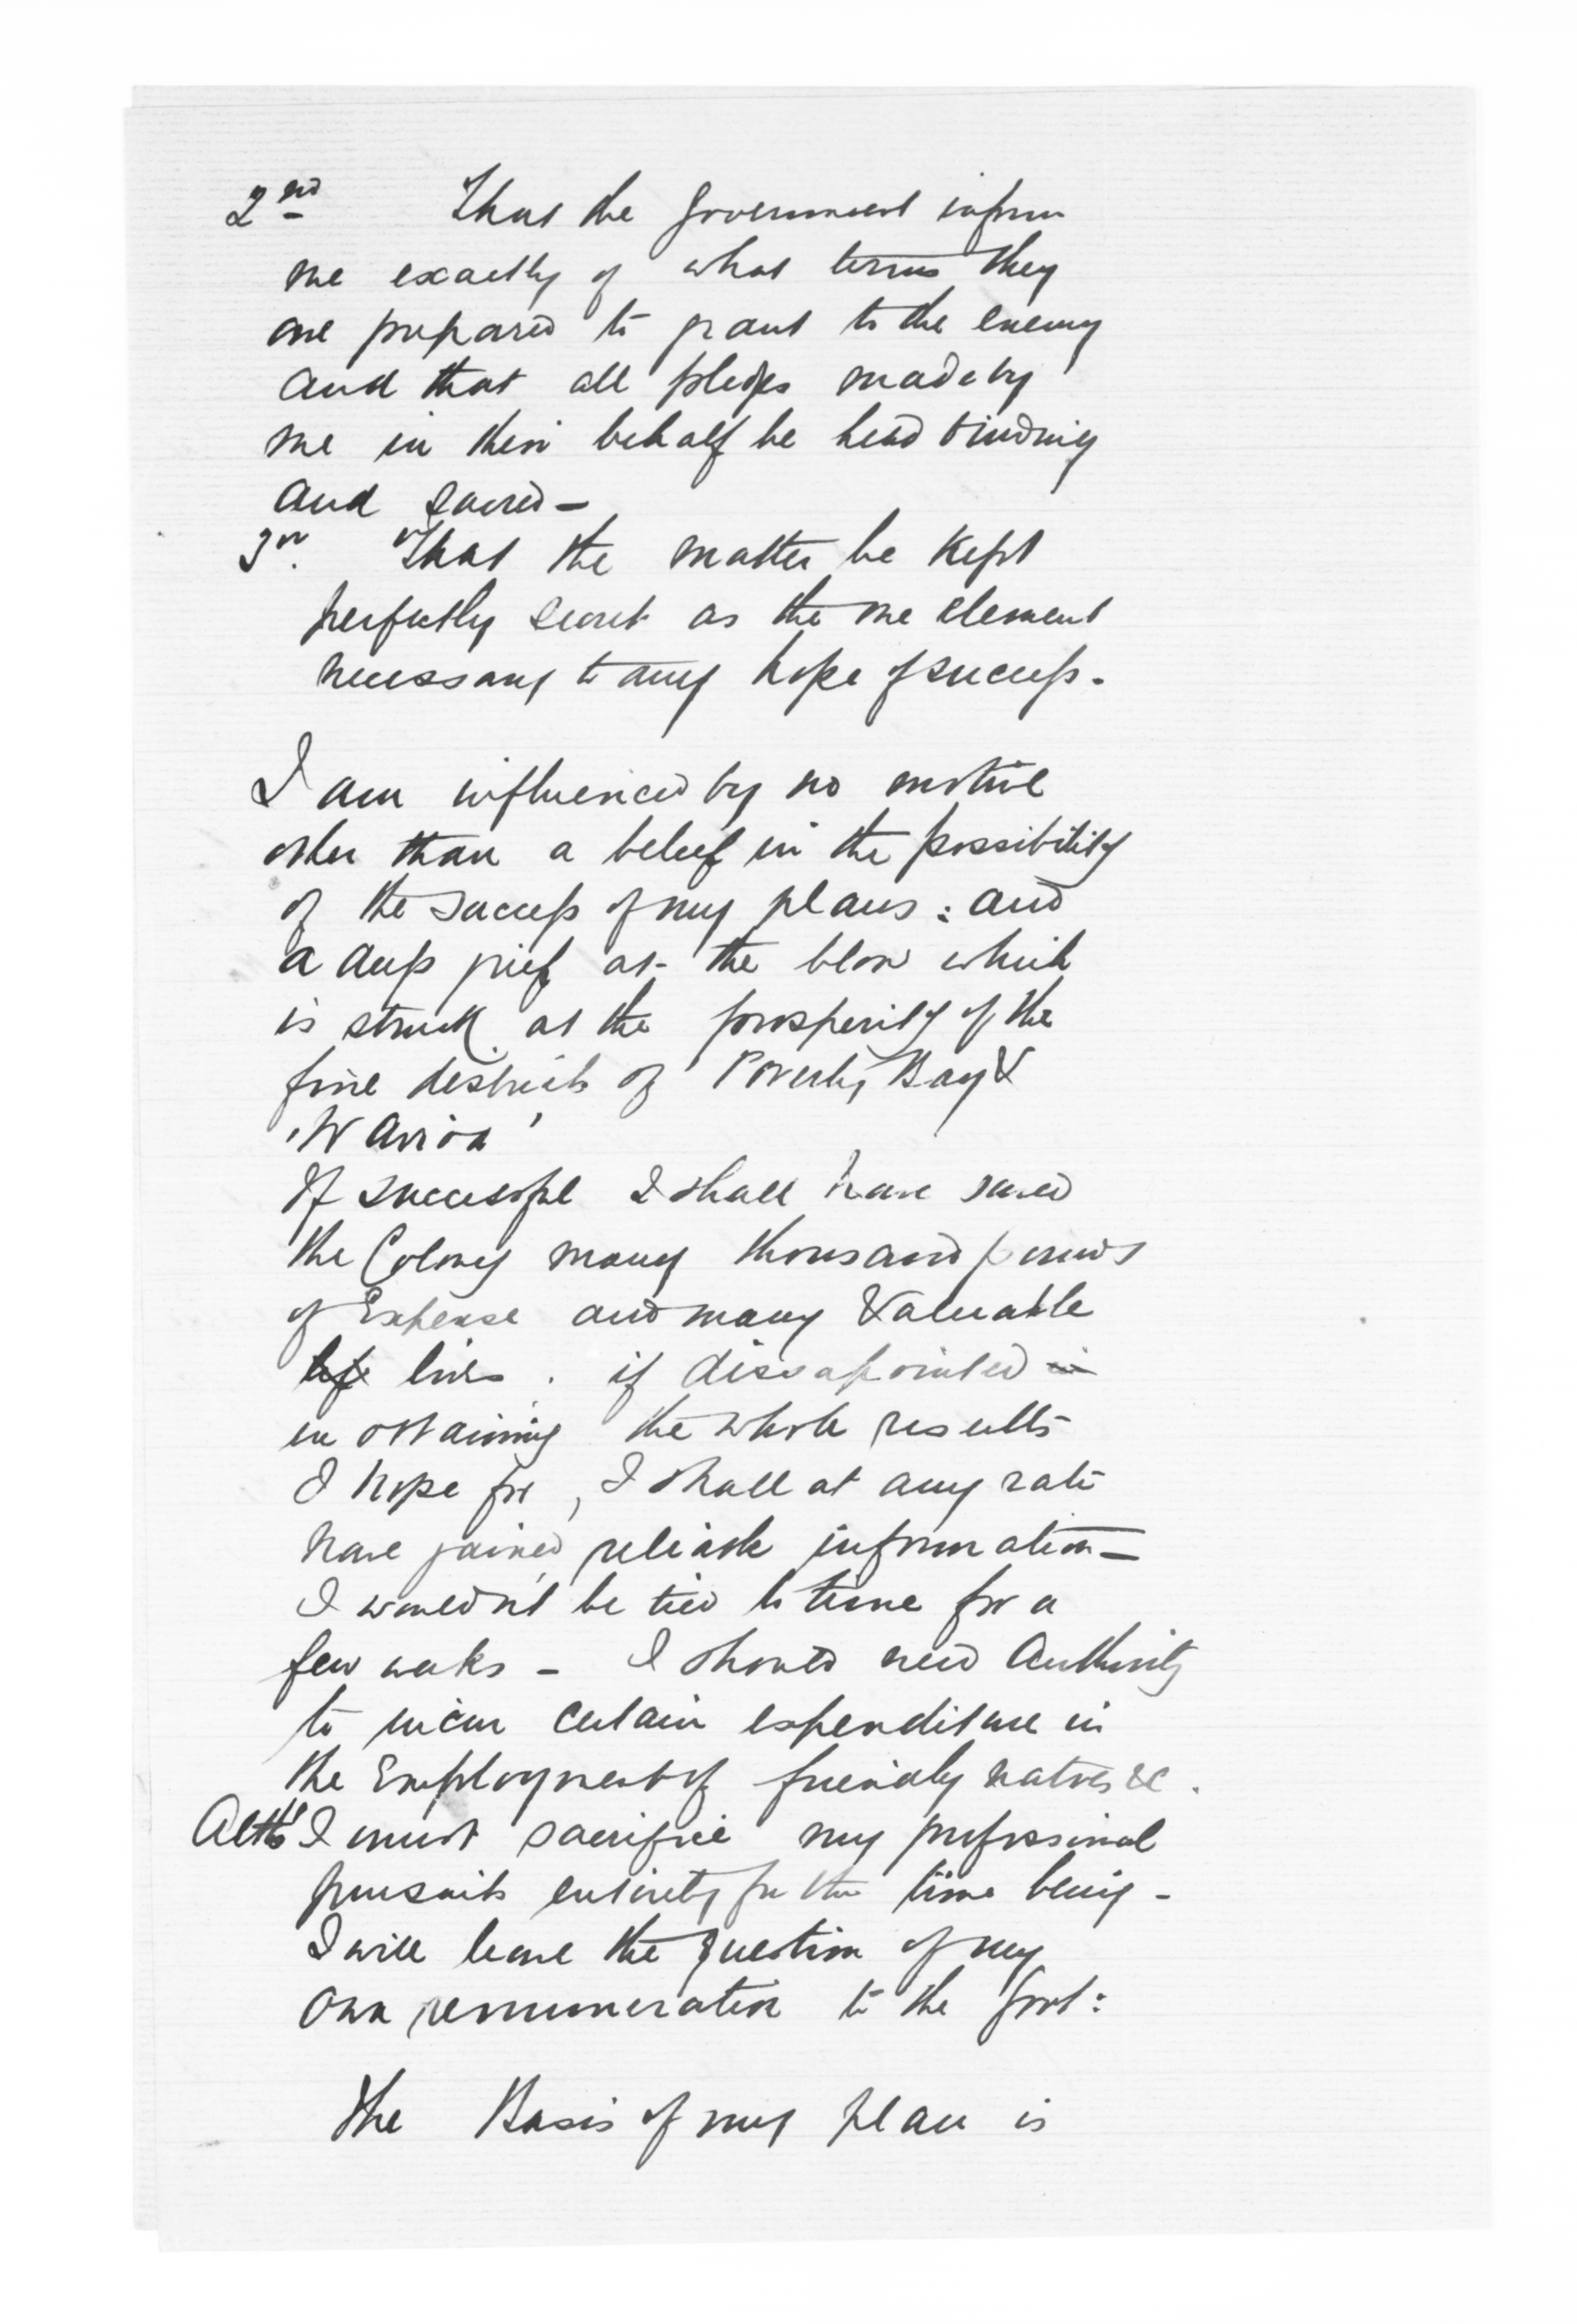 2nd That the Government inform
me exactly of what terms they
are prepared to grant to the enemy
and that all pledges made by
me in their behalf be held binding
and sacred -
3rd. That the matter be kept
perfectly secret as the one element
necessary to any hope of success.
I am influenced by no motive
other than a belief in the possibility
of the success of my plans: and
a deep grief at the blow which
is struck at the prosperity of the
fine districts of Poverty Bay &
'Wairoa'
If successful I shall have saved
the Colony many thousand pounds
of Expense and many Valuable
life lives. if dissapointed in
in obtaining the whole results
I hope for, I shall at any rate
have gained reliable information -
I wouldn't be tied to time for a
few weeks - I should need Authority
to incur certain expenditure in
the Employment of friendly natives &c.
Altho' I must sacrifice my professional
pursuits entirely for the time being -
I will leave the question of my
own remuneration to the Govt:
The Basis of my plan is